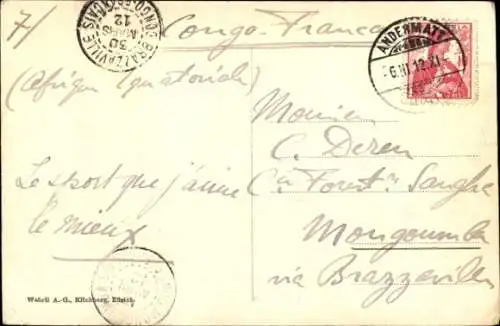 7/
Congo-Français
BRAZZAVILLE
30
MARS
12
CONGO FRANÇAIS
ANDERMATT
6.III.12.XI-
(Afrique Equatoriale)
Monsieur
C. Deren
Cie Forest. Sangha
Mongoumba
via Brazzaville
Le sport que j'aime
le mieux
Wehrli A.-G., Kilchberg, Zürich.